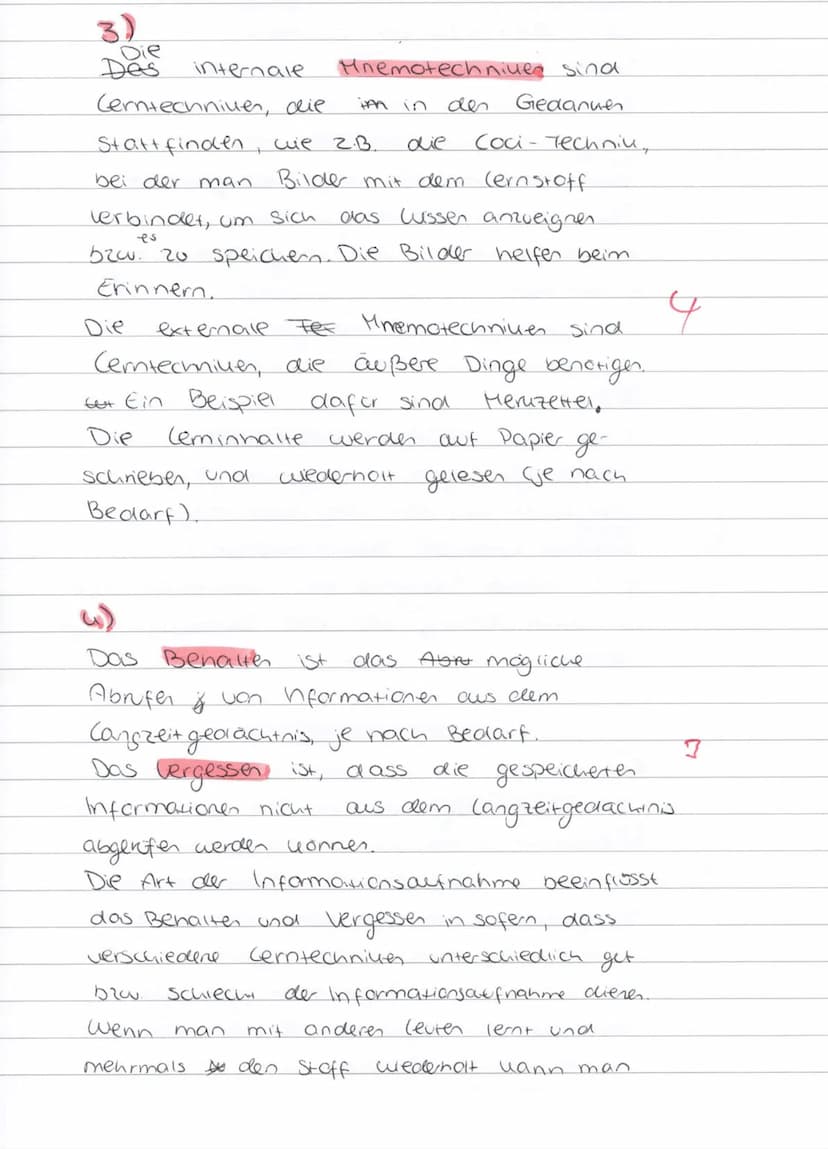 3)
Die
Das internale Mnemotechniken sind
Lerntechniken, die im in den Gedanken
stattfinden, wie z.B. die Loci-Technik,
bei der man Bilder mit dem Lernstoff
verbindet, um sich das Wissen anzueignen
es
bzw. zu speichern. Die Bilder helfen beim
Erinnern.
Die externale Tec Mnemotechniken sind
4
Lerntechniken, die äußere Dinge benötigen.
Ein Beispiel dafür sind Merkzettel.
Die Lerninhalte werden auf Papier ge-
schrieben, und wiederholt gelesen (je nach
Bedarf).
4)
Das Behalten ist das Abru mögliche
Abrufen von Informationen aus dem
Langzeitgedächtnis, je nach Bedarf.
3
Das Vergessen ist, dass die gespeicherten
Informationen nicht aus dem Langzeitgedächtnis
abgerufen werden können.
Die Art der Informationsaufnahme beeinflusst
das Behalten und Vergessen in sofern, dass
verschiedene Lerntechniken unterschiedlich gut
bzw. schlecht der Informationsaufnahme dienen.
Wenn man mit anderen Leuten lernt und
mehrmals den Stoff wiederholt kann man